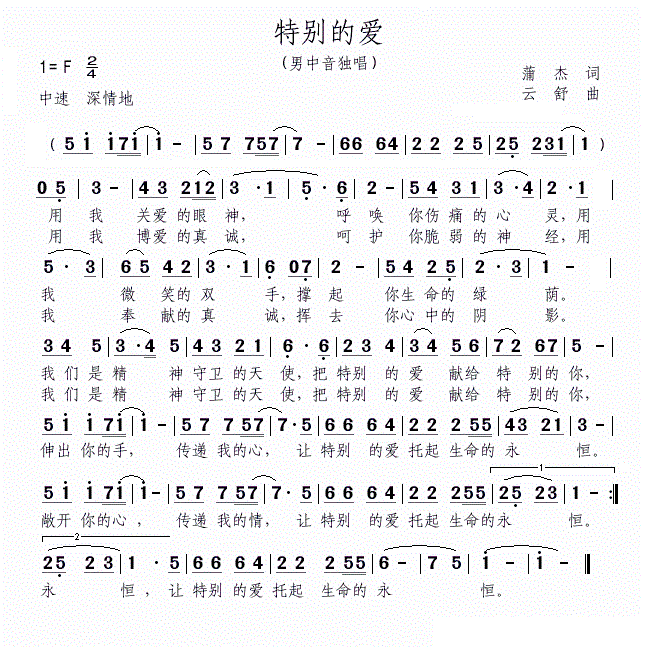 特别的爱
(男中音独唱)
1=F 2/4
蒲 杰 词
中速 深情地
云 舒 曲
(5 i i 7 i | i - | 5 7 7 5 7 | 7 - | 6 6 6 4 | 2 2 2 5 | 2 5 2 3 1 | 1 )
0 5 | 3 - | 4 3 2 1 2 | 3 · 1 | 5 · 6 | 2 - | 5 4 3 1 | 3 · 4 | 2 · 1 |
用 我 关爱的眼神, 呼 唤 你伤痛的心 灵,用
用 我 博爱的真诚, 呵 护 你脆弱的神 经,用
5 · 3 | 6 5 4 2 | 3 · 1 | 6 0 7 | 2 - | 5 4 2 5 | 2 · 3 | 1 - |
我 微 笑的双 手,撑 起 你生命的绿 荫。
我 奉 献的真 诚,挥 去 你心中的阴 影。
3 4 5 | 3 · 4 5 | 4 3 2 1 2 | 6 · 6 | 2 3 4 | 3 4 5 6 | 7 2 6 7 | 5 - |
我们是精 神守卫的天 使,把特别的 爱 献给特 别的你,
我们是精 神守卫的天 使,把特别的 爱 献给特 别的你,
5 i i 7 i | i - | 5 7 7 5 7 | 7 · 5 | 6 6 6 4 | 2 2 2 5 5 | 4 3 2 1 | 3 - |
伸出你的手, 传递我的心, 让特别 的爱托起生命的永 恒。
5 i i 7 i | i - | 5 7 7 5 7 | 7 · 5 | 6 6 6 4 | 2 2 2 5 5 | 2 5 2 3 | 1 - :|
1
敞开你的心, 传递我的情, 让特别 的爱托起生命的永 恒。
2
2 5 2 3 | 1 · 5 | 6 6 6 4 | 2 2 2 5 5 | 6 - | 7 5 | i - | i - ‖
永 恒,让特别的爱托起 生命的永 恒。